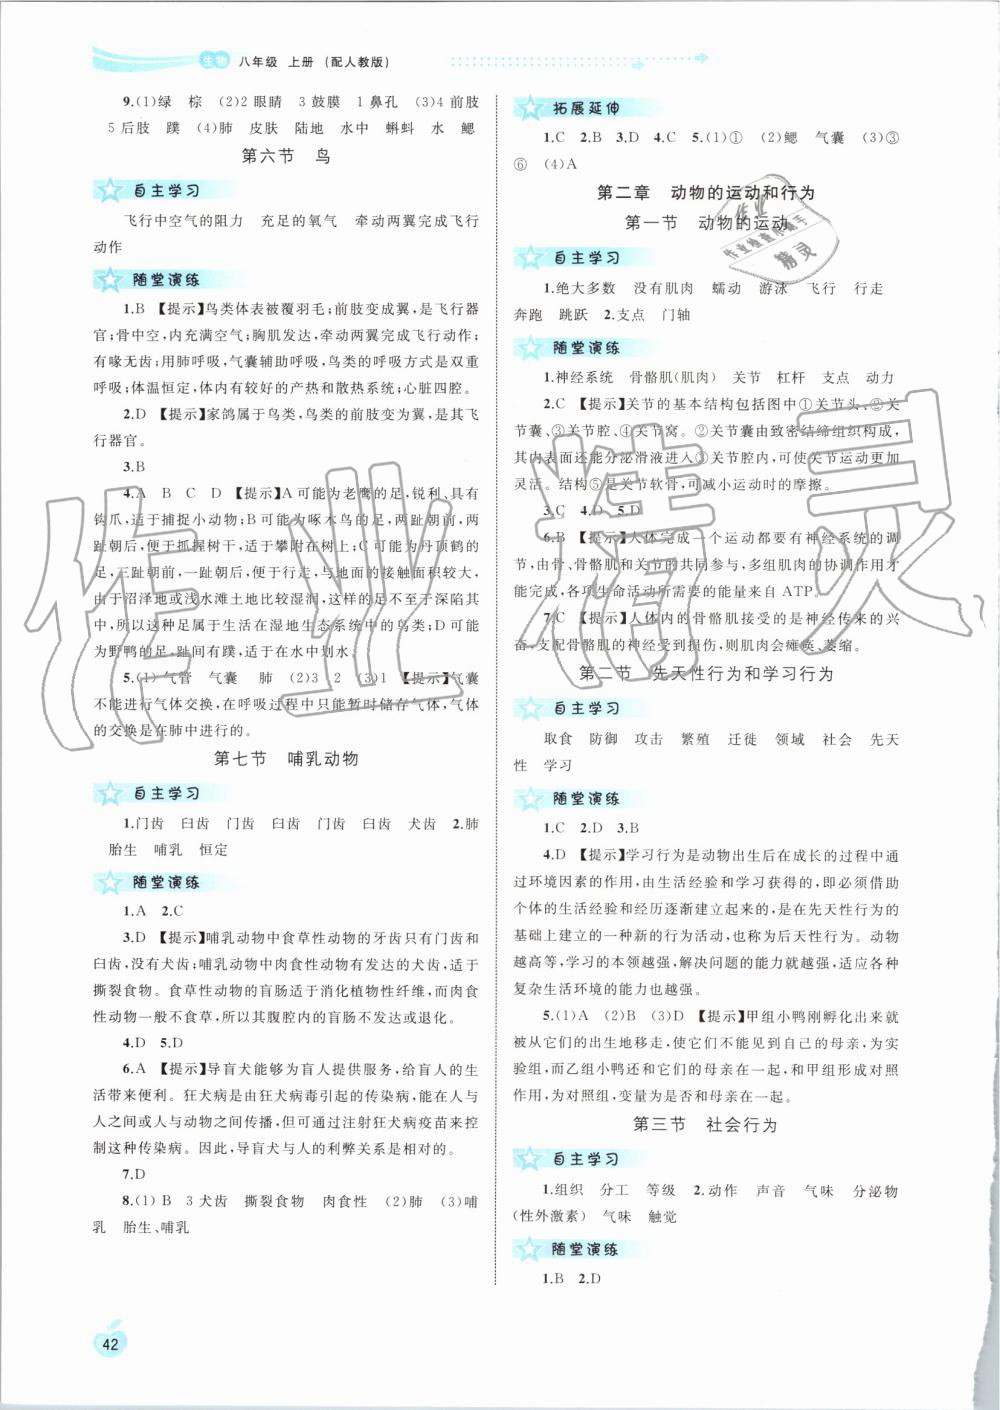 生物 八年级 上册 (配人教版)
9.(1)绿 棕 (2)2 眼睛 3 鼓膜 1 鼻孔 (3)4 前肢
5 后肢 蹼 (4)肺 皮肤 陆地 水中 蝌蚪 水 鳃
第六节 鸟
自主学习
飞行中空气的阻力 充足的氧气 牵动两翼完成飞行
动作
随堂演练
1.B 【提示】鸟类体表被覆羽毛;前肢变成翼,是飞行器
官;骨中空,内充满空气;胸肌发达,牵动两翼完成飞行动作;
有喙无齿;用肺呼吸,气囊辅助呼吸,鸟类的呼吸方式是双重
呼吸;体温恒定,体内有较好的产热和散热系统;心脏四腔。
2.D 【提示】家鸽属于鸟类,鸟的前肢变为翼,是其飞
行器官。
3.B
4.A B C D 【提示】A可能为老鹰的足,锐利、具有
钩爪,适于捕捉小动物;B可能为啄木鸟的足,两趾朝前,两
趾朝后,便于抓握树干,适于攀附在树上;C可能为丹顶鹤的
足,三趾朝前,一趾朝后,便于行走,与地面的接触面积较大,
由于沼泽地或浅水滩土地比较湿润,这样的足不至于深陷其
中,所以这种足属于生活在湿地生态系统中的鸟类;D可能
为野鸭的足,趾间有蹼,适于在水中划水。
5.(1)气管 气囊 肺 (2)3 2 (3)1 【提示】气囊
不能进行气体交换,在呼吸过程中只能暂时储存气体,气体
的交换是在肺中进行的。
第七节 哺乳动物
自主学习
1.门齿 臼齿 门齿 臼齿 门齿 臼齿 犬齿 2.肺
胎生 哺乳 恒定
随堂演练
1.A 2.C
3.D 【提示】哺乳动物中食草性动物的牙齿只有门齿和
臼齿,没有犬齿;哺乳动物中肉食性动物有发达的犬齿,适于
撕裂食物。食草性动物的盲肠适于消化植物性纤维,而肉食
性动物一般不食草,所以其腹腔内的盲肠不发达或退化。
4.D 5.D
6.A 【提示】导盲犬能够为盲人提供服务,给盲人的生
活带来便利。狂犬病是由狂犬病毒引起的传染病,能在人与
人之间或人与动物之间传播,但可通过注射狂犬病疫苗来控
制这种传染病。因此,导盲犬与人的利弊关系是相对的。
7.D
8.(1)B 3 犬齿 撕裂食物 肉食性 (2)肺 (3)哺
乳 胎生、哺乳
42
拓展延伸
1.C 2.B 3.D 4.C 5.(1)① (2)鳃 气囊 (3)③
⑥ (4)A
第二章 动物的运动和行为
第一节 动物的运动
自主学习
1.绝大多数 没有肌肉 蠕动 游泳 飞行 行走
奔跑 跳跃 2.支点 门轴
随堂演练
1.神经系统 骨骼肌(肌肉) 关节 杠杆 支点 动力
2.C 【提示】关节的基本结构包括图中①关节头、②关
节囊、③关节腔、④关节窝。②关节囊由致密结缔组织构成,
其内表面还能分泌滑液进入③关节腔内,可使关节运动更加
灵活。结构⑤是关节软骨,可减小运动时的摩擦。
3.C 4.D 5.D
6.B 【提示】人体完成一个运动都要有神经系统的调
节,由骨、骨骼肌和关节的共同参与,多组肌肉的协调作用才
能完成,各项生命活动所需要的能量来自 ATP。
7.C 【提示】人体内的骨骼肌接受的是神经传来的兴
奋,支配骨骼肌的神经受到损伤,则肌肉会瘫痪、萎缩。
第二节 先天性行为和学习行为
自主学习
取食 防御 攻击 繁殖 迁徙 领域 社会 先天
性 学习
随堂演练
1.C 2.D 3.B
4.D 【提示】学习行为是动物出生后在成长的过程中通
过环境因素的作用,由生活经验和学习获得的,即必须借助
个体的生活经验和经历逐渐建立起来的,是在先天性行为的
基础上建立的一种新的行为活动,也称为后天性行为。动物
越高等,学习的本领越强,解决问题的能力就越强,适应各种
复杂生活环境的能力也越强。
5.(1)A (2)B (3)D 【提示】甲组小鸭刚孵化出来就
被从它们的出生地移走,使它们不能见到自己的母亲,为实
验组,而乙组小鸭和它们的母亲在一起,和甲组形成对照
作用,为对照组,变量为是否和母亲在一起。
第三节 社会行为
自主学习
1.组织 分工 等级 2.动作 声音 气味 分泌物
(性外激素) 气味 触觉
随堂演练
1.B 2.D
作业精灵
作业检查小帮手
精灵